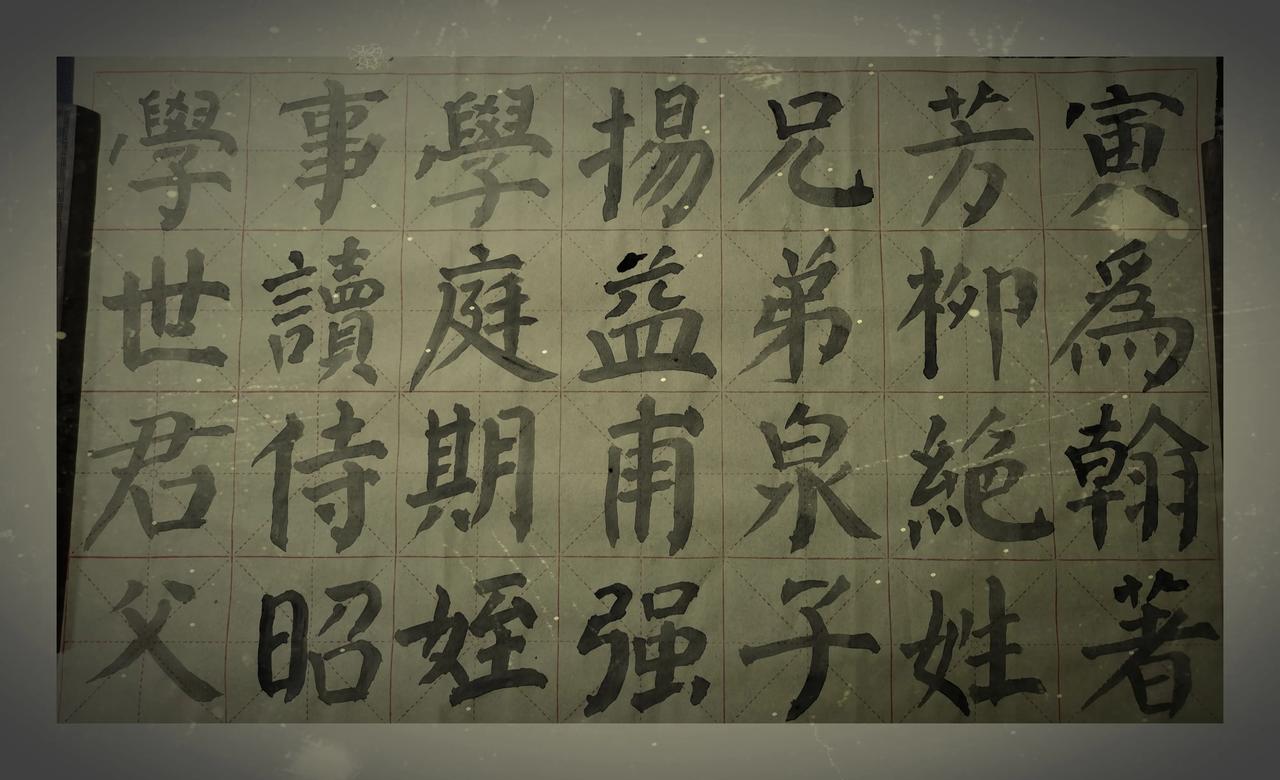 寅爲翰著
芳柳絕姓
兄弟泉子
揚益甫强
學庭期姪
事讀侍昭
學世君父